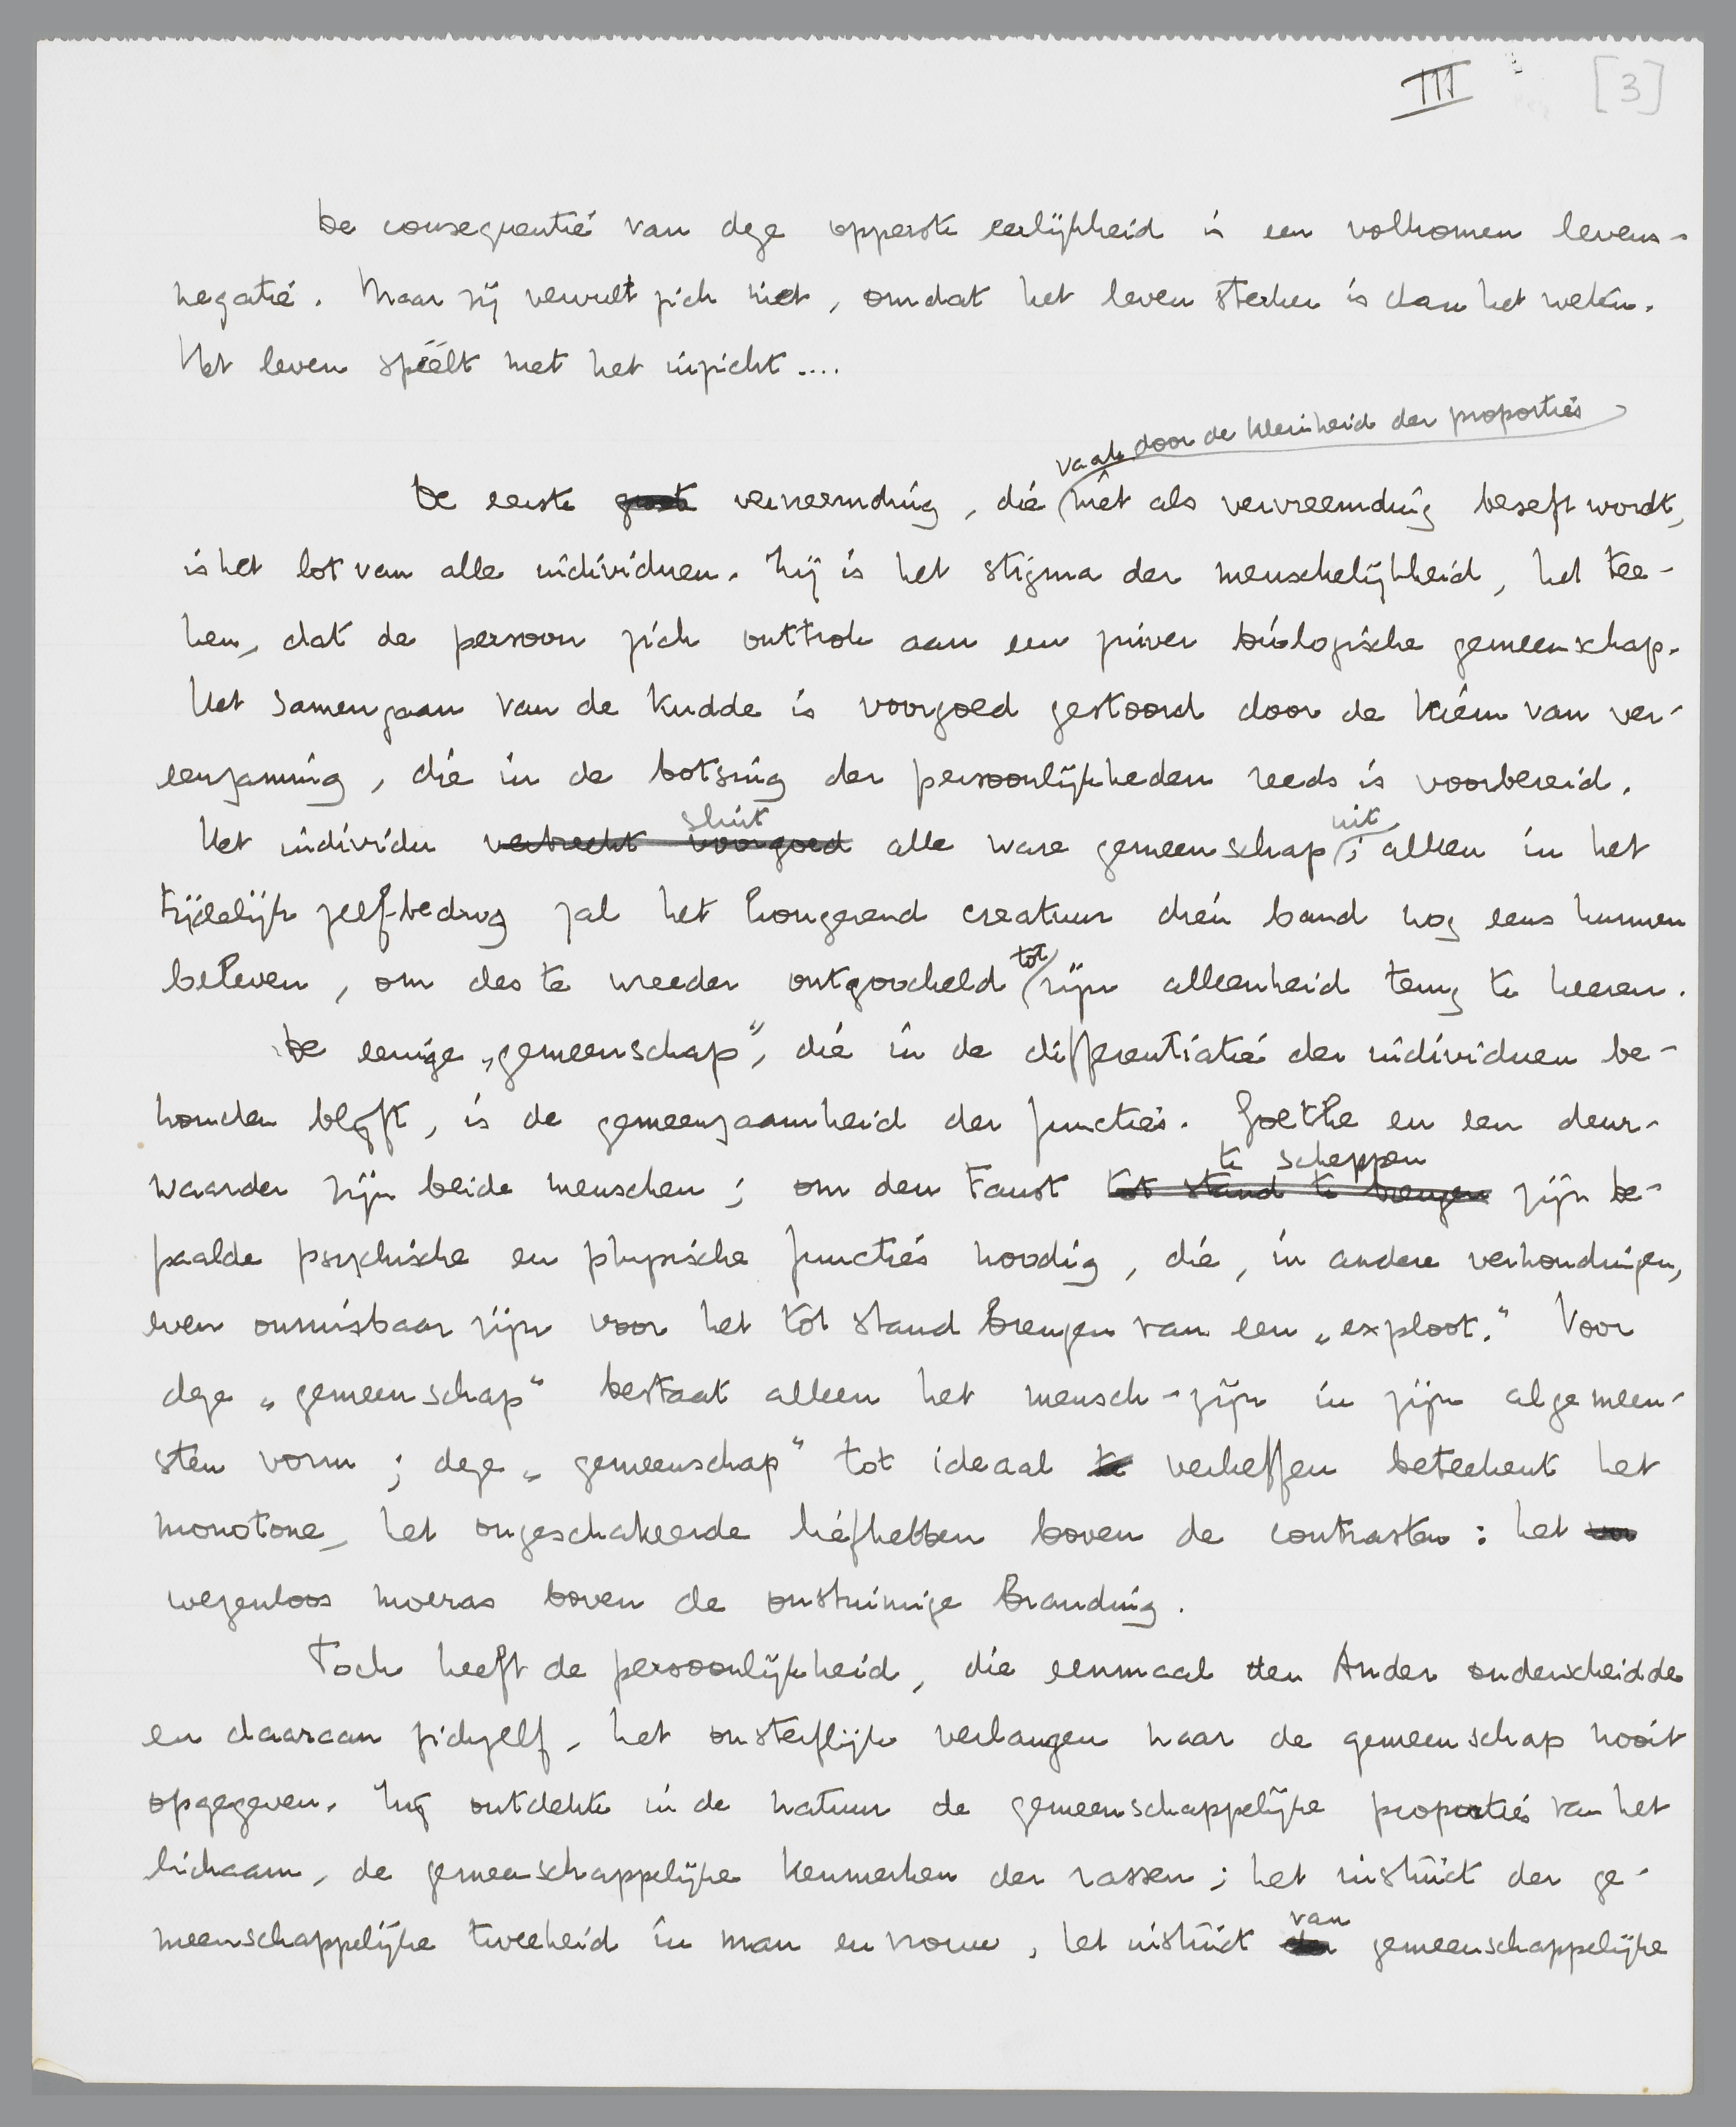 III [3]
De consequentie van deze opperste eerlijkheid is een volkomen levens-
negatie. Maar zij vervult zich niet, omdat het leven sterker is dan het weten.
Het leven speelt met het inzicht....
vaak door de kleinheid der proporties
De eerste groote vervreemding, die niet als vervreemding beseft wordt,
is het lot van alle individuen. Zij is het stigma der menschelijkheid, het tee-
ken, dat de persoon zich onttrok aan een zuiver biologische gemeenschap.
Het samengaan van de kudde is voorgoed gestoord door de kiem van ver-
eenzaming, die in de botsing der persoonlijkheden reeds is voorbereid.
sluit uit
Het individu verbrecht voorgoed alle ware gemeenschap; alleen in het
tijdelijk zelf-bedrog zal het hongerend creatuur dien band nog eens kunnen
beleven, om des te wreeder ontgoocheld tot zijn alleenheid terug te keeren.
De eenige „gemeenschap”, die in de differentiatie der individuen be-
houden blijft, is de gemeenzaamheid der functies. Goethe en een deur-
te scheppen
waarder zijn beide menschen; om den Faust tot stand te brengen zijn be-
paalde psychische en physische functies noodig, die, in andere verhoudingen,
even onmisbaar zijn voor het tot stand brengen van een „exploot.” Voor
deze „gemeenschap” bestaat alleen het mensch-zijn in zijn algemeen-
sten vorm; deze „gemeenschap” tot ideaal te verheffen beteekent het
monotone, het ongeschakeerde liefhebben boven de contrasten: het
wegenloos moeras boven de onstuimige branding.
Toch heeft de persoonlijkheid, die eenmaal den Ander onderscheidde
en daaraan zichzelf, het onsterflijk verlangen naar de gemeenschap nooit
opgegeven. Zij ontdekte in de natuur de gemeenschappelijke proporties van het
lichaam, de gemeenschappelijke kenmerken der rassen; het instinct der ge-
meenschappelijke tweeheid in man en vrouw, het instinct van gemeenschappelijke